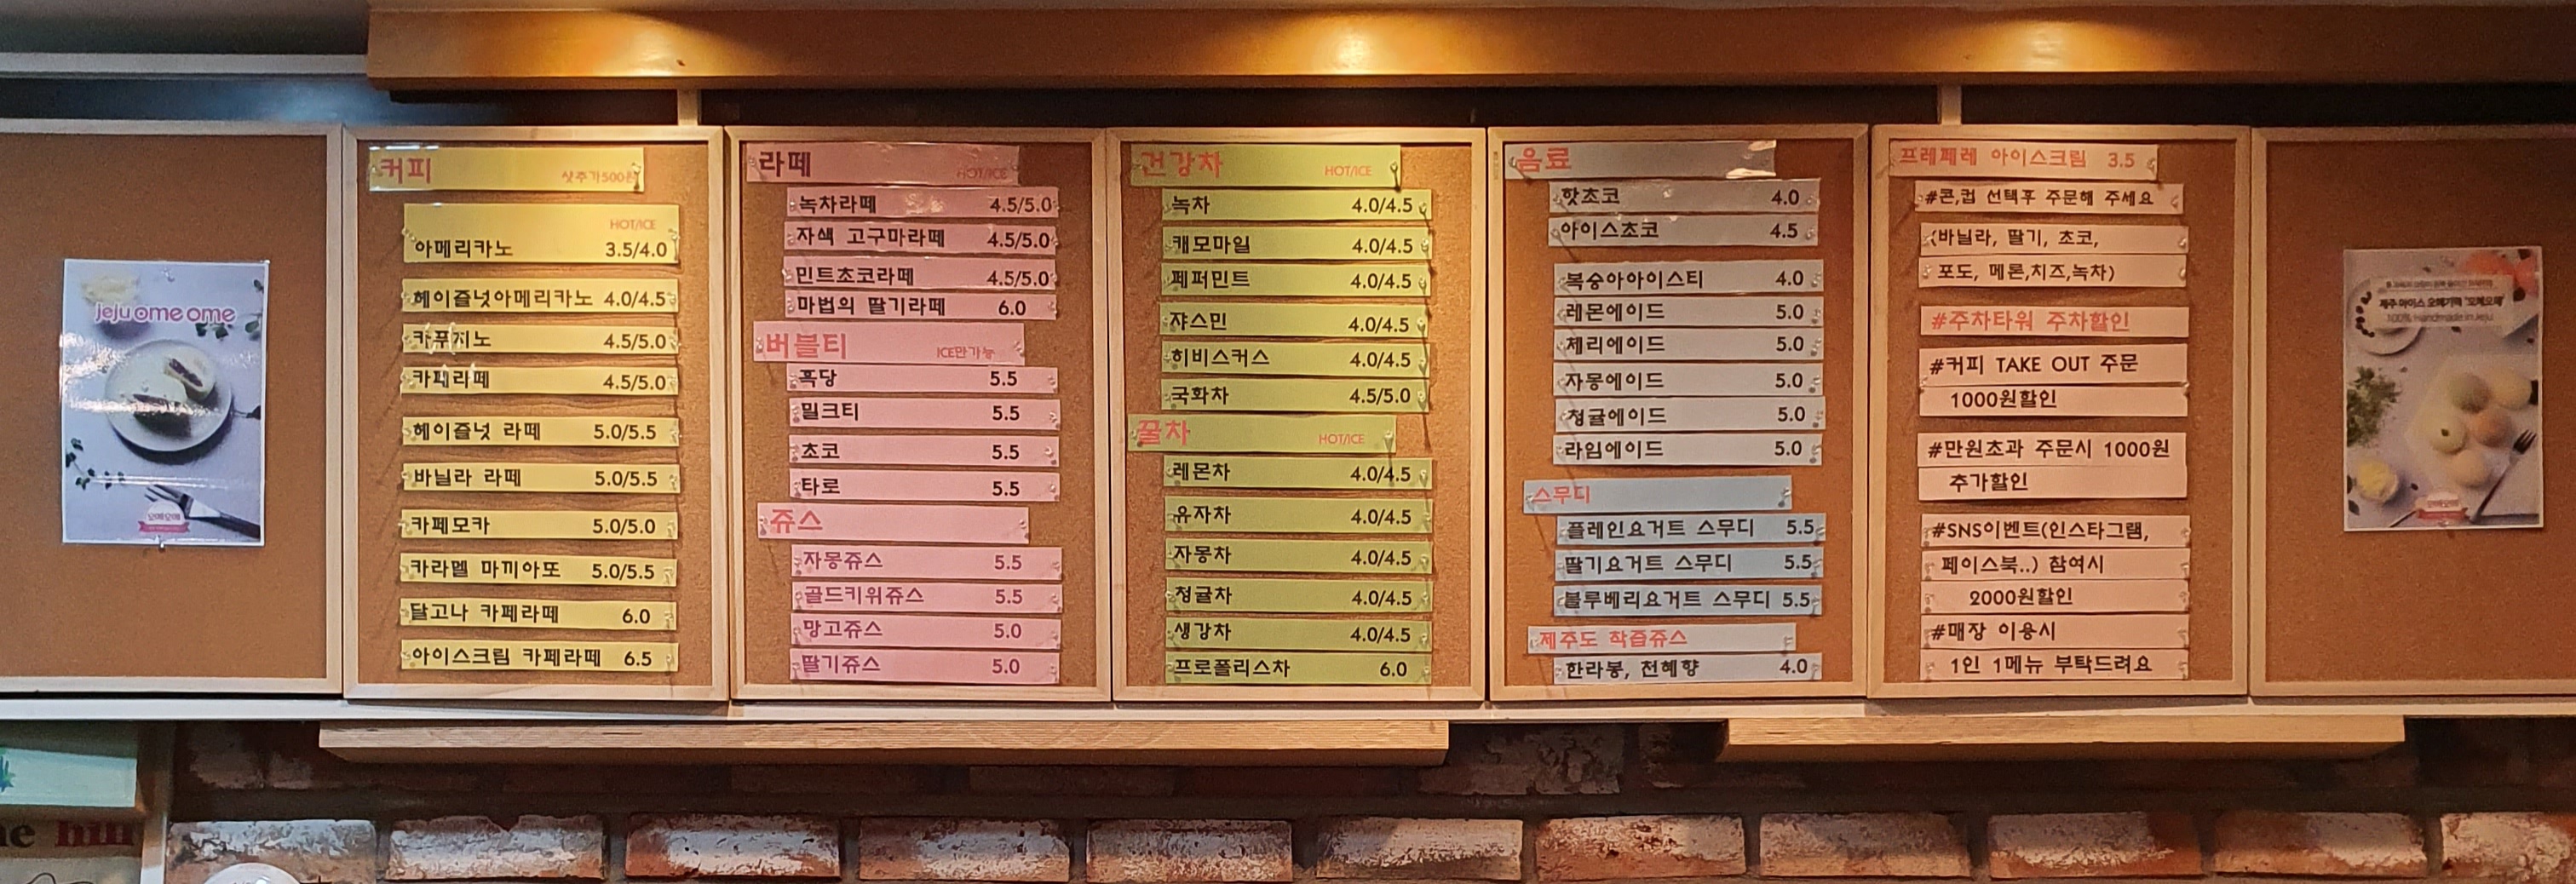 jeju ome ome
오메오메
커피 샷추가500원
HOT/ICE
아메리카노 3.5/4.0
헤이즐넛아메리카노 4.0/4.5
카푸치노 4.5/5.0
카페라떼 4.5/5.0
헤이즐넛 라떼 5.0/5.5
바닐라 라떼 5.0/5.5
카페모카 5.0/5.0
카라멜 마끼아또 5.0/5.5
달고나 카페라떼 6.0
아이스크림 카페라떼 6.5
라떼 HOT/ICE
녹차라떼 4.5/5.0
자색 고구마라떼 4.5/5.0
민트초코라떼 4.5/5.0
마법의 딸기라떼 6.0
버블티 ICE만가능
흑당 5.5
밀크티 5.5
초코 5.5
타로 5.5
쥬스
자몽쥬스 5.5
골드키위쥬스 5.5
망고쥬스 5.0
딸기쥬스 5.0
건강차 HOT/ICE
녹차 4.0/4.5
캐모마일 4.0/4.5
페퍼민트 4.0/4.5
쟈스민 4.0/4.5
히비스커스 4.0/4.5
국화차 4.5/5.0
꿀차 HOT/ICE
레몬차 4.0/4.5
유자차 4.0/4.5
자몽차 4.0/4.5
청귤차 4.0/4.5
생강차 4.0/4.5
프로폴리스차 6.0
음료
핫초코 4.0
아이스초코 4.5
복숭아아이스티 4.0
레몬에이드 5.0
체리에이드 5.0
자몽에이드 5.0
청귤에이드 5.0
라임에이드 5.0
스무디
플레인요거트 스무디 5.5
딸기요거트 스무디 5.5
블루베리요거트 스무디 5.5
제주도 착즙쥬스
한라봉, 천혜향 4.0
프레페레 아이스크림 3.5
#콘,컵 선택후 주문해 주세요
(바닐라, 딸기, 초코,
포도, 메론,치즈,녹차)
#주차타워 주차할인
#커피 TAKE OUT 주문
1000원할인
#만원초과 주문시 1000원
추가할인
#SNS이벤트(인스타그램,
페이스북..) 참여시
2000원할인
#매장 이용시
1인 1메뉴 부탁드려요
제주 아이스 오메기떡 '오메오메'
100% Handmade in Jeju